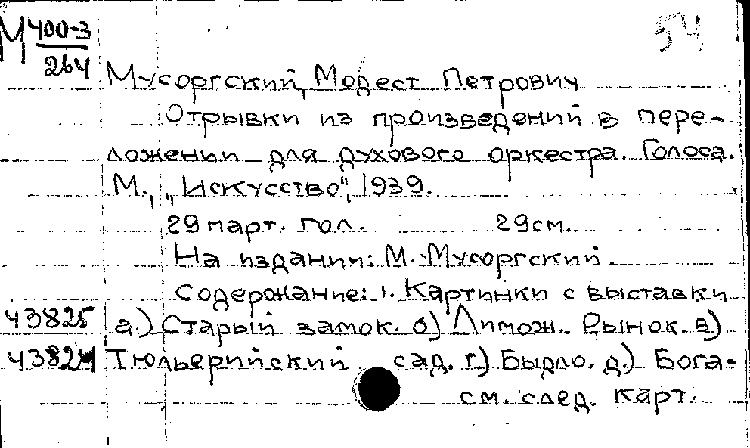 М 400-3
264
54
Мусоргский, Модест Петрович
Отрывки из произведений в пере-
ложении для духового оркестра. Голоса.
М., "Искусство", 1939.
29 парт. гол. 29 см.
На издании: М. Мусоргский
Содержание: 1. Картинки с выставки
43825 а.) Старый замок. б) Лимож. Рынок. в)
43824 Тюльерийский сад. г) Быдло. д.) Бога-
см. след. карт.